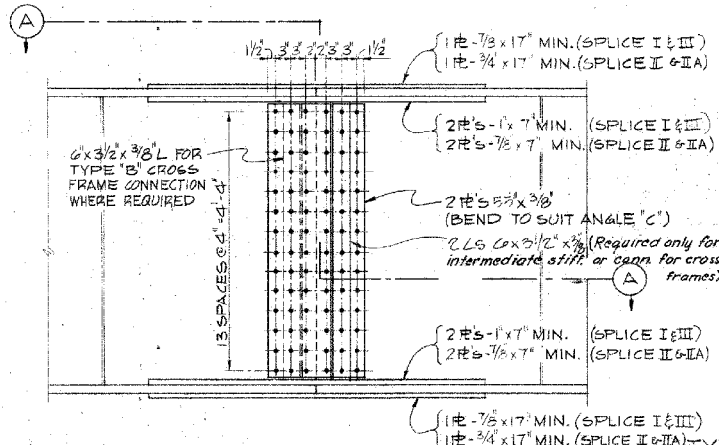 A
1½" 3" 3" 2" 2" 3" 3" 1½"
1 ⅊-7/8 x 17" MIN. (SPLICE I & III)
1 ⅊-3/4" x 17" MIN. (SPLICE II & IIA)
2 ⅊'s-1" x 7" MIN. (SPLICE I & III)
2 ⅊'s-7/8 x 7" MIN. (SPLICE II & IIA)
6" x 3½" x 3/8" L FOR
TYPE "B" CROSS
FRAME CONNECTION
WHERE REQUIRED
2 ⅊'s x 3/8"
(BEND TO SUIT ANGLE "C")
2 LS 6 x 3½" x 3/8 (Required only for
intermediate stiff. or conn. for cross
frames)
A
13 SPACES @ 4" = 4'-4"
2 ⅊'s-1" x 7" MIN. (SPLICE I & III)
2 ⅊'s-7/8 x 7" MIN. (SPLICE II & IIA)
1 ⅊-7/8" x 17" MIN. (SPLICE I & III)
1 ⅊-3/4" x 17" MIN. (SPLICE II & IIA)